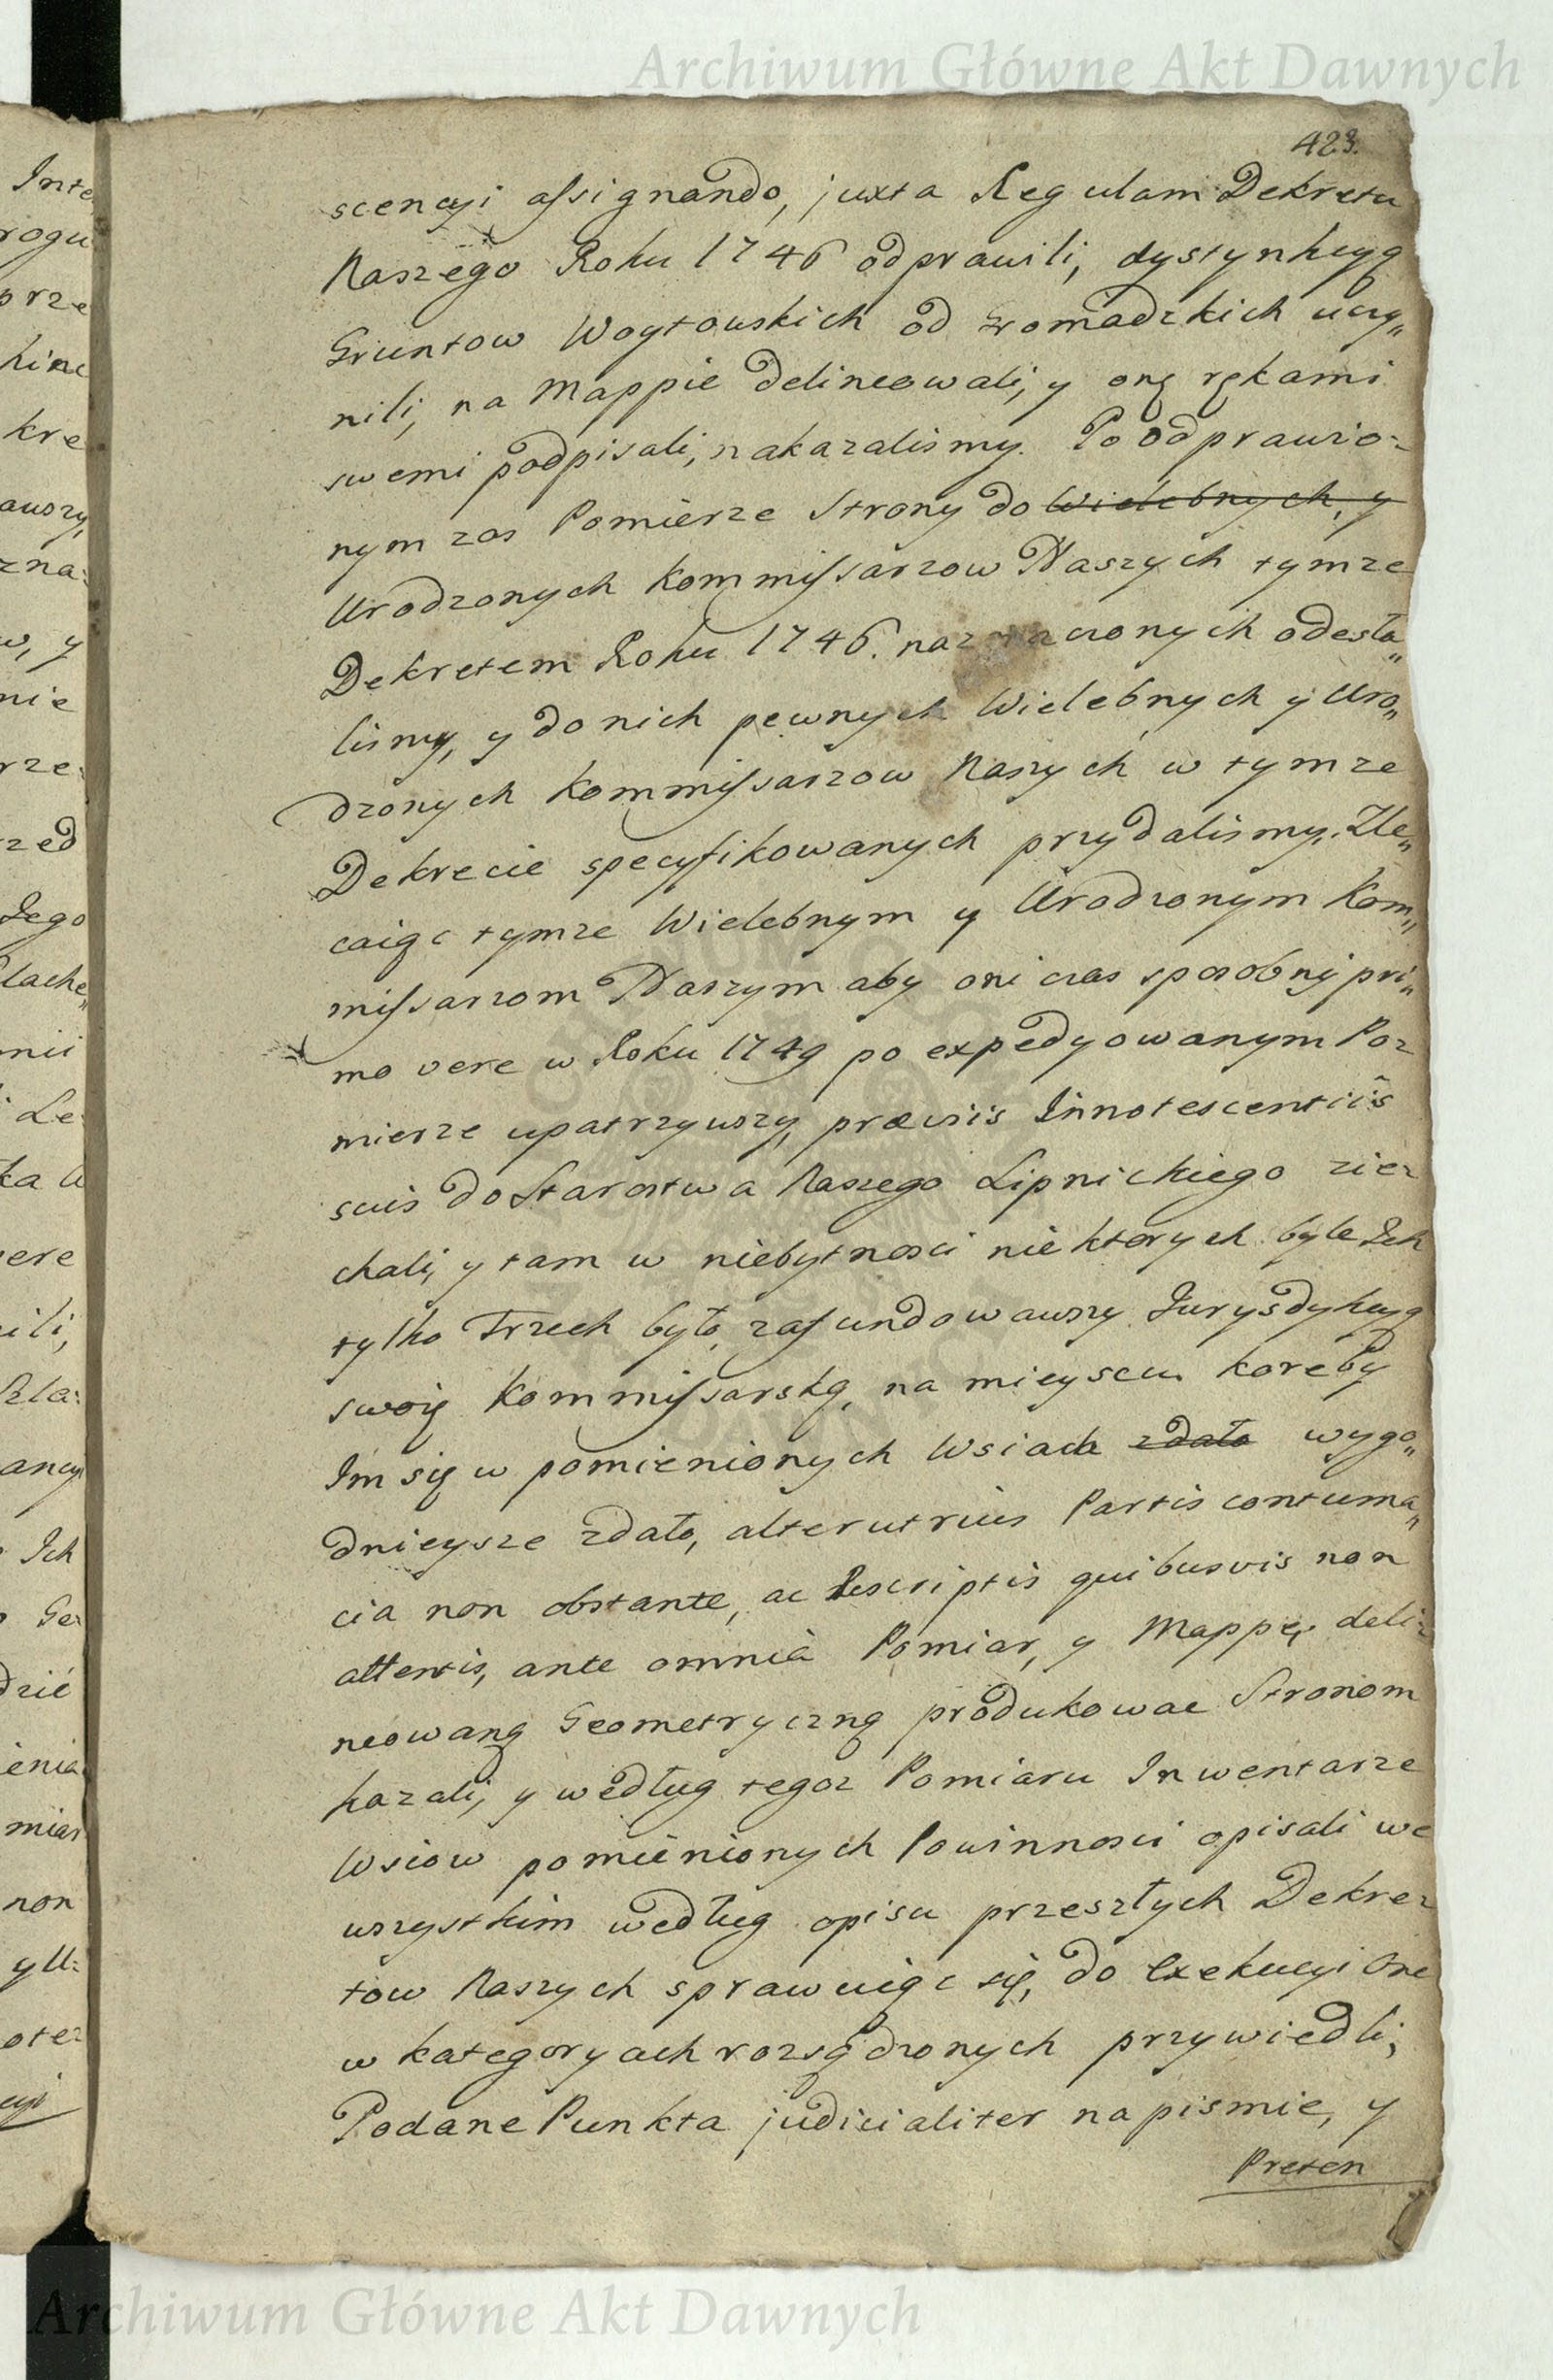 Archiwum Główne Akt Dawnych
423.
scencyi assignando, juxta Regulam Dekretu
Naszego Roku 1746 odprawili, dystynkcyą
Gruntow Woytowskich od Gromadzkich uczy„
nili, na Mappie delineowali, y onę rękami
swemi podpisali, nakazalismy. Po odprawio:
nym zas Pomierze Strony do Wielebnych, y
Urodzonych Kommissarzow Naszych tymze
Dekretem Roku 1746. naznaczonych odesła„
lismy, y do nich pewnych Wielebnych y Uro„
dzonych Kommissarzow Naszych w tymze
Dekrecie specyfikowanych przydalismy. Zle„
caiąc tymze Wielebnym y Urodzonym Kom„
missarzom Naszym aby oni czas sposobny pri„
mo vere w Roku 1749 po expedyowanym Po:
mierze upatrzywszy, præviis Innotescentiis
suis do Starostwa Naszego Lipnickiego zie:
chali, y tam w niebytnosci niektorych byle Ich
tylko Trzech było, zafundowawszy Jurysdykcyą
swoię Kommissarską, na mieyscu koreby
Im się w pomienionych Wsiach zdało wygo„
dnieysze zdało, alterutrius Partis contuma„
cia non obstante, ac Rescriptis quibusvis non
attentis, ante omnia Pomiar, y Mappę deli:
neowaną Geometryczną produkowac Stronom
kazali, y według tegoz Pomiaru Inwentarze
Wsiow pomienionych Powinnosci opisali we
wszystkim według opisu przeszłych Dekre:
tow Naszych sprawuiąc się, do Exekucyi One
w kategoryach rozsądzonych przywiedli,
Podane Punkta judicialiter na pismie, y
Preten
Inte
rogu
prze
kinc
kre
awszy,
zna:
w, y
nie
rze:
rzed
Jego
lache„
nii
Le:
ka W
vere
ili,
Szla:
ancyi
Ich
Ge:
dzić
ienia
miar
non
y U:
ote:
cyi
Archiwum Główne Akt Dawnych